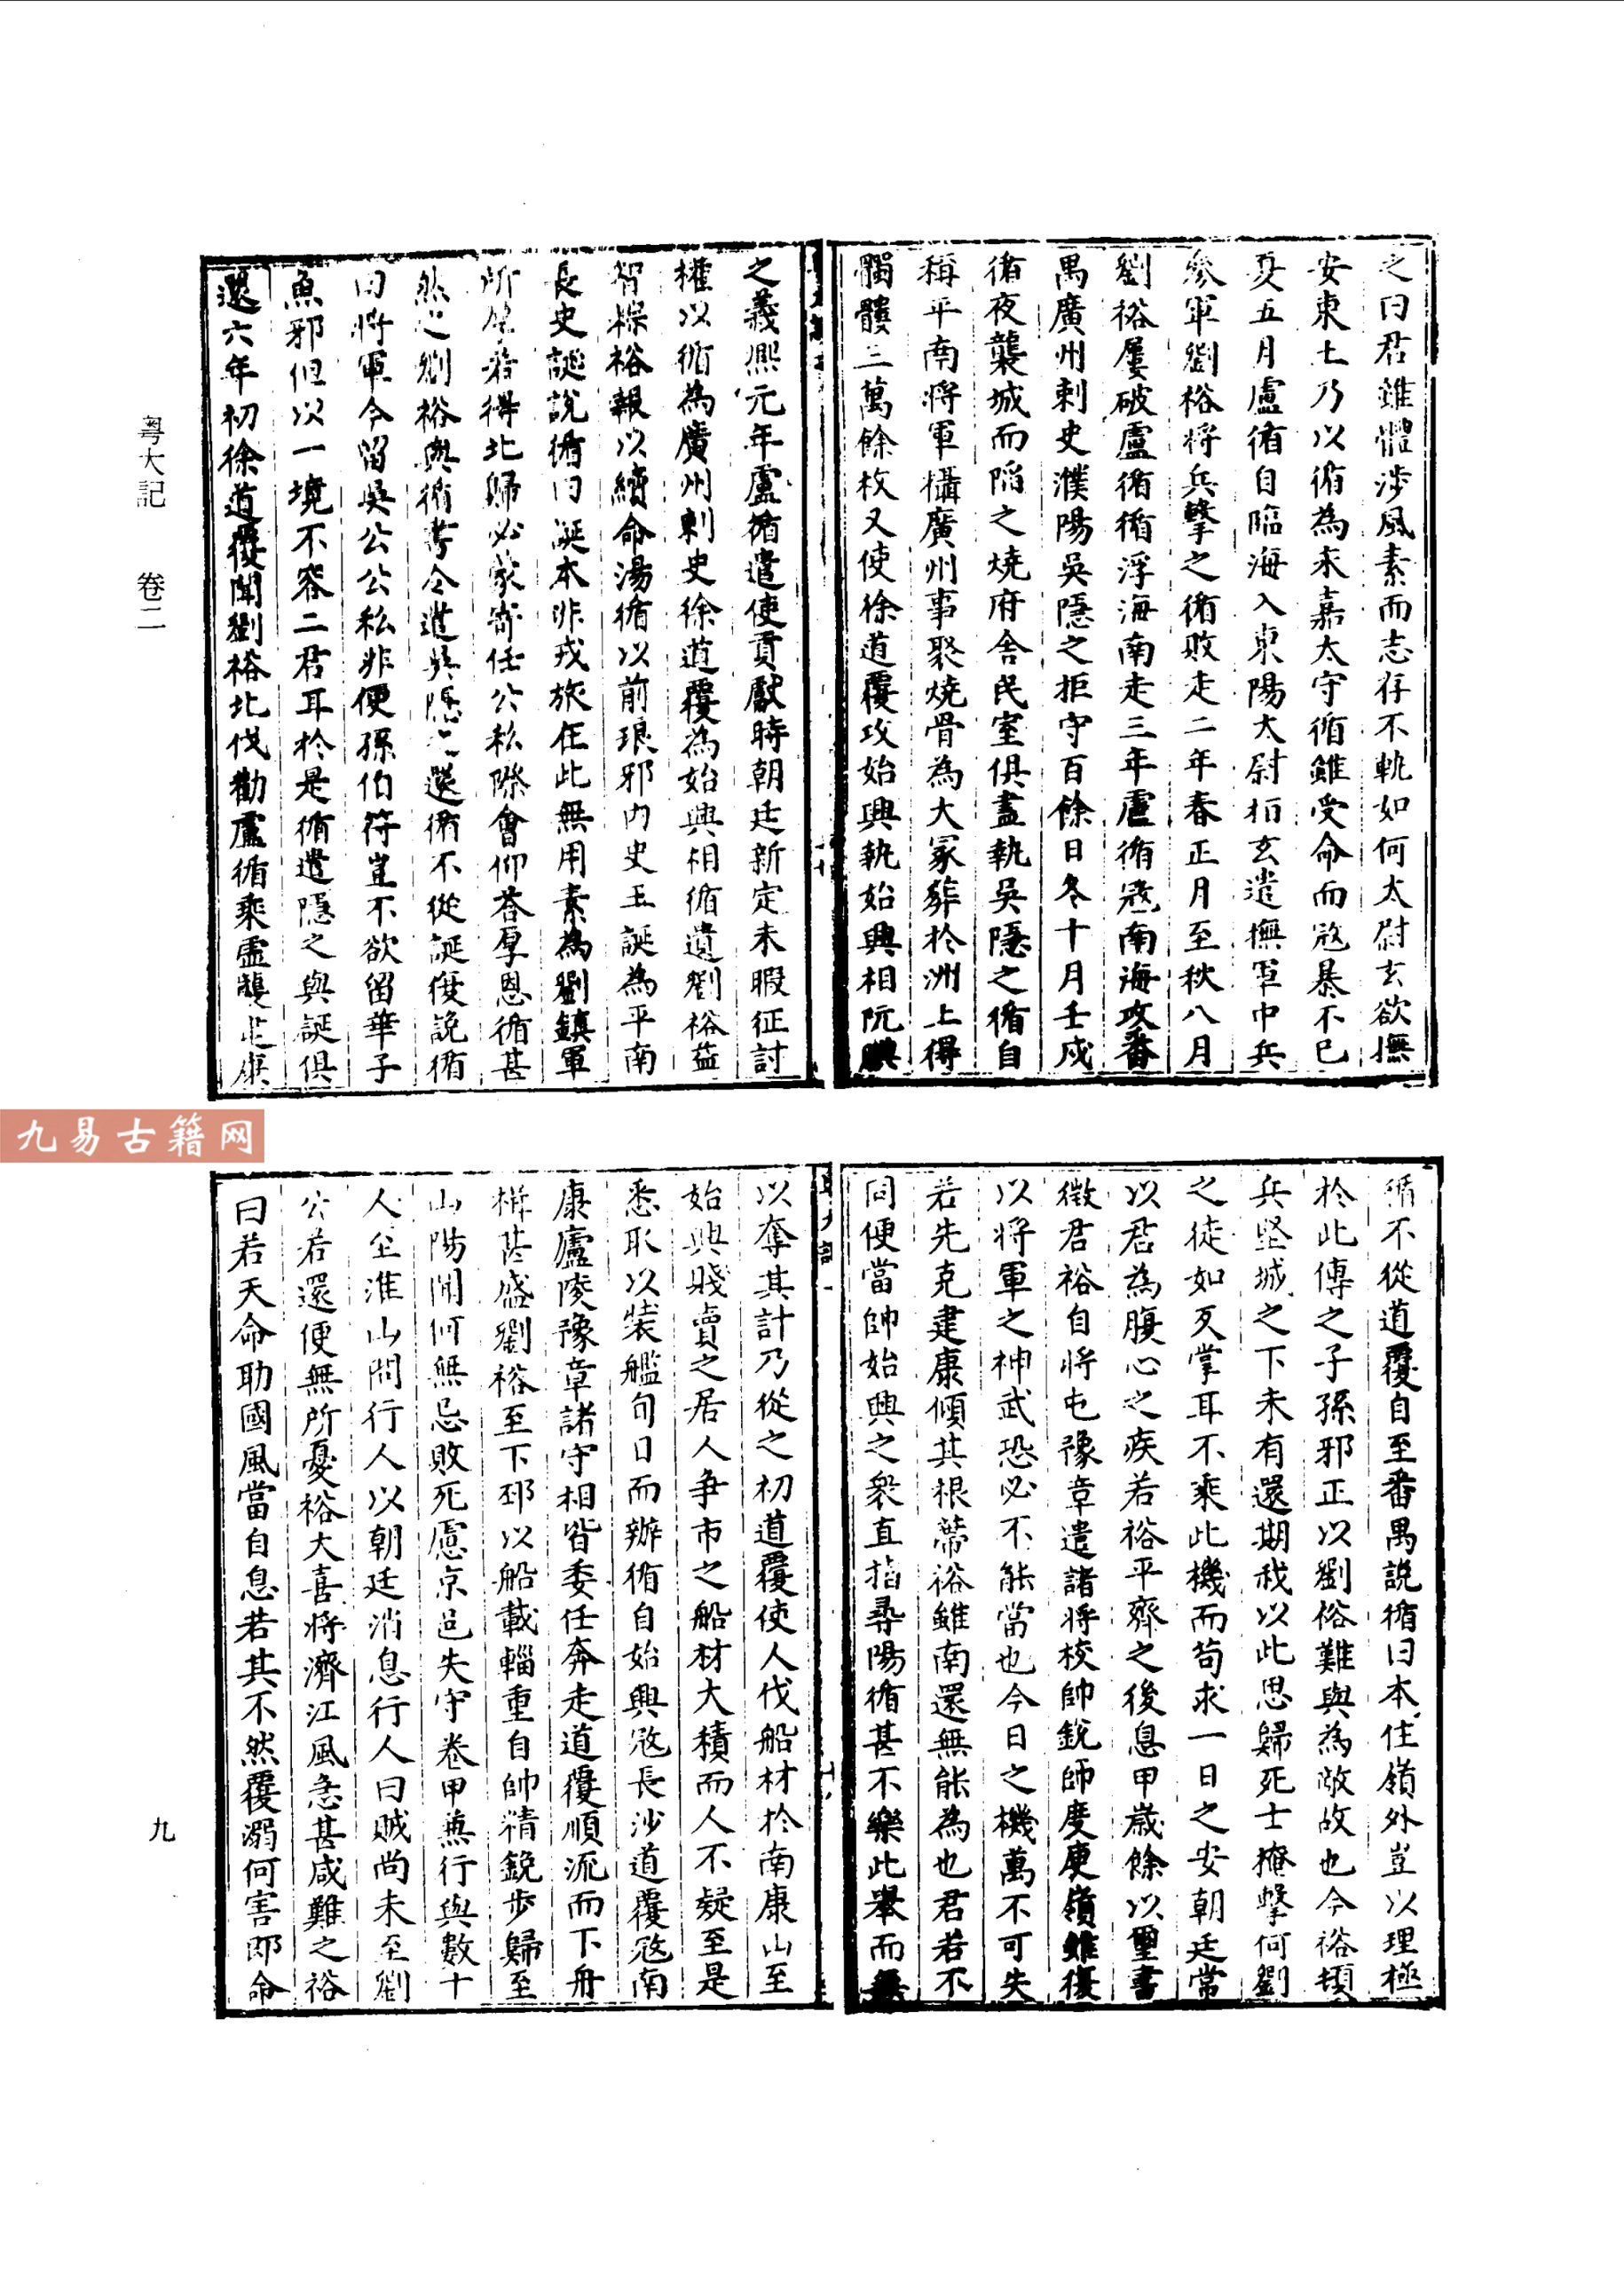 之曰君雖體涉風素而志存不軌如何太尉玄欲撫
安東土乃以循為永嘉太守循雖受命而寇暴不已
夏五月盧循自臨海入東陽大尉桓玄遣撫軍中兵
參軍劉裕將兵擊之循敗走二年春正月至秋八月
劉裕屢破盧循循浮海南走三年盧循寇南海攻番
禺廣州刺史濮陽吳隱之拒守百餘日冬十月壬戌
循夜襲城而陷之燒府舍民室俱盡執吳隱之循自
稱平南將軍攝廣州事聚燒骨為大冢葬於洲上得
髑髏三萬餘枚又使徐道覆攻始興執始興相阮腆
之義熙元年盧循遣使貢獻時朝廷新定未暇征討
權以循為廣州刺史徐道覆為始興相循遺劉裕益
智粽裕報以續命湯循以前琅邪內史王誕為平南
長史誕說循曰誕本非戎旅在此無用素為劉鎮軍
所厚若得北歸必蒙寄任公私際會仰荅厚恩循甚
然之劉裕與循書令遣吳隱之還循不從誕復說循
曰將軍今留吳公公私非便孫伯符豈不欲留華子
魚邪但以一境不容二君耳於是循遣隱之與誕俱
還六年初徐道覆聞劉裕北伐勸盧循乘虛襲建康
循不從道覆自至番禺說循曰本住嶺外豈以理極
於此傳之子孫邪正以劉裕難與為敵故也今裕頓
兵堅城之下未有還期我以此思歸死士掩擊何劉
之徒如反掌耳不乘此機而苟求一日之安朝廷常
以君為腹心之疾若裕平齊之後息甲歲餘以璽書
徵君裕自將屯豫章遣諸將校帥銳師度庾嶺雖復
以將軍之神武恐必不能當也今日之機萬不可失
若先克建康傾其根蒂裕雖南還無能為也君若不
同便當帥始興之衆直指尋陽循甚不樂此舉而無
以奪其計乃從之初道覆使人伐船材於南康山至
始興賤賣之居人爭市之船材大積而人不疑至是
悉取以裝艦旬日而辦循自始興寇長沙道覆寇南
康廬陵豫章諸守相皆委任奔走道覆順流而下舟
楫甚盛劉裕至下邳以船載輜重自帥精銳步歸至
山陽聞何無忌敗死慮京邑失守卷甲兼行與數十
人至淮山問行人以朝廷消息行人曰賊尚未至劉
公若還便無所憂裕大喜將濟江風急甚咸難之裕
曰若天命助國風當自息若其不然覆溺何害即命
粵大記 卷二
九
九易古籍网